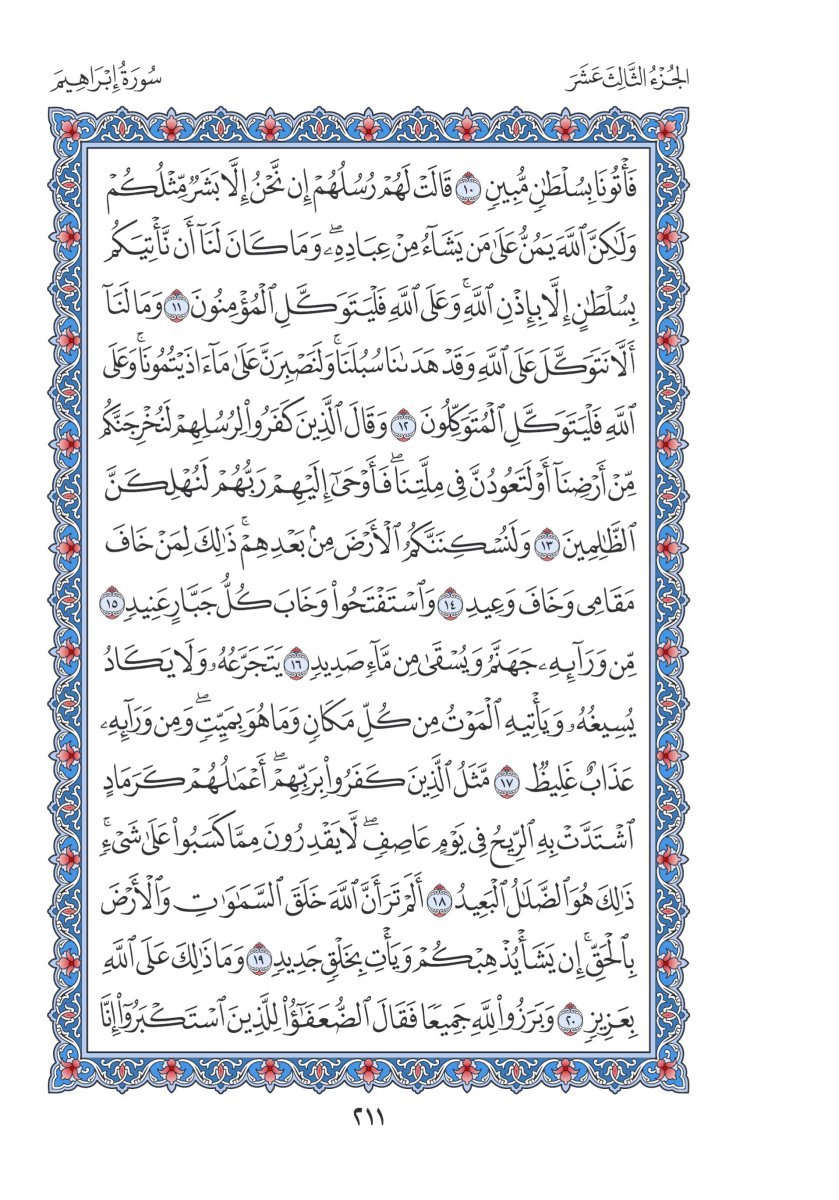 الجُزْءُ الثَّالِثَ عَشَرَ
سُورَةُ إِبْرَاهِيمَ
فَأْتُونَا بِسُلْطَٰنٖ مُّبِينٖ ١٠ قَالَتْ لَهُمْ رُسُلُهُمْ إِن نَّحْنُ إِلَّا بَشَرٞ مِّثْلُكُمْ
وَلَٰكِنَّ ٱللَّهَ يَمُنُّ عَلَىٰ مَن يَشَآءُ مِنْ عِبَادِهِۦۖ وَمَا كَانَ لَنَآ أَن نَّأْتِيَكُم
بِسُلْطَٰنٍ إِلَّا بِإِذْنِ ٱللَّهِۚ وَعَلَى ٱللَّهِ فَلْيَتَوَكَّلِ ٱلْمُؤْمِنُونَ ١١ وَمَا لَنَآ
أَلَّا نَتَوَكَّلَ عَلَى ٱللَّهِ وَقَدْ هَدَىٰنَا سُبُلَنَاۚ وَلَنَصْبِرَنَّ عَلَىٰ مَآ ءَاذَيْتُمُونَاۚ وَعَلَى
ٱللَّهِ فَلْيَتَوَكَّلِ ٱلْمُتَوَكِّلُونَ ١٢ وَقَالَ ٱلَّذِينَ كَفَرُوا۟ لِرُسُلِهِمْ لَنُخْرِجَنَّكُم
مِّنْ أَرْضِنَآ أَوْ لَتَعُودُنَّ فِى مِلَّتِنَاۖ فَأَوْحَىٰٓ إِلَيْهِمْ رَبُّهُمْ لَنُهْلِكَنَّ
ٱلظَّٰلِمِينَ ١٣ وَلَنُسْكِنَنَّكُمُ ٱلْأَرْضَ مِنۢ بَعْدِهِمْۚ ذَٰلِكَ لِمَنْ خَافَ
مَقَامِى وَخَافَ وَعِيدِ ١٤ وَٱسْتَفْتَحُوا۟ وَخَابَ كُلُّ جَبَّارٍ عَنِيدٖ ١٥
مِّن وَرَآئِهِۦ جَهَنَّمُ وَيُسْقَىٰ مِن مَّآءٖ صَدِيدٖ ١٦ يَتَجَرَّعُهُۥ وَلَا يَكَادُ
يُسِيغُهُۥ وَيَأْتِيهِ ٱلْمَوْتُ مِن كُلِّ مَكَانٖ وَمَا هُوَ بِمَيِّتٖۖ وَمِن وَرَآئِهِۦ
عَذَابٌ غَلِيظٞ ١٧ مَّثَلُ ٱلَّذِينَ كَفَرُوا۟ بِرَبِّهِمْۖ أَعْمَٰلُهُمْ كَرَمَادٍ
ٱشْتَدَّتْ بِهِ ٱلرِّيحُ فِى يَوْمٍ عَاصِفٖۖ لَّا يَقْدِرُونَ مِمَّا كَسَبُوا۟ عَلَىٰ شَىْءٖۚ
ذَٰلِكَ هُوَ ٱلضَّلَٰلُ ٱلْبَعِيدُ ١٨ أَلَمْ تَرَ أَنَّ ٱللَّهَ خَلَقَ ٱلسَّمَٰوَٰتِ وَٱلْأَرْضَ
بِٱلْحَقِّۚ إِن يَشَأْ يُذْهِبْكُمْ وَيَأْتِ بِخَلْقٖ جَدِيدٖ ١٩ وَمَا ذَٰلِكَ عَلَى ٱللَّهِ
بِعَزِيزٖ ٢٠ وَبَرَزُوا۟ لِلَّهِ جَمِيعٗا فَقَالَ ٱلضُّعَفَٰٓؤُا۟ لِلَّذِينَ ٱسْتَكْبَرُوٓا۟ إِنَّا
٢١١